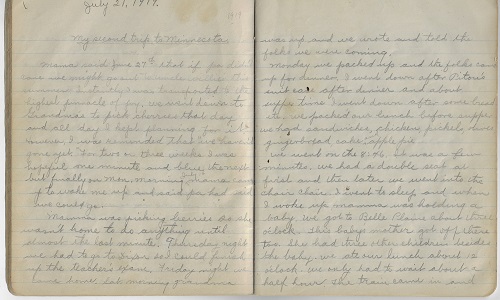 July 21, 1919.
1919
My second trip to Minnesota
Mama said June 27th that if pa didn't
care we might go out
summer. I was transported to the
highest pinnacle of joy, we went down to
Grandmas to pick cherries that day
and all day I kept planning for it.
However, I was reminded that we hadn't
gone yet. For two or three weeks I was
hopeful one minute and blue the next
but finally on Mon. mama
up to wake me up and said pa had said
we could go.
Mamma was picking berries so she
wasn't home to do anything until
almost the last minute. Thursday night
we had to go to so I could finish
up the Teacher's Exam. Friday night we
came home. Sat. morning grandma
was up and we wrote and told the
folks we were coming.
Monday we packed up and the folks came
up for dinner. I went down after
suit case after dinner and about
supper time I went down after some bread
etc. we packed our lunch before supper
we had sandwiches, chicken, pickels,
gingerbread cake, apple pie.
We went on the 8:06, it was a few
minutes. we had a double seat at
first and then later we went into the
chair chair. I went to sleep and when
I woke up mamma was holding a
baby. we got to Belle Plaine about
o'clock. This babys mother got off there
too. She had three other children besides
the baby. we ate our lunch about 12
o'clock. we only had to wait about a
half hour. The train came in and